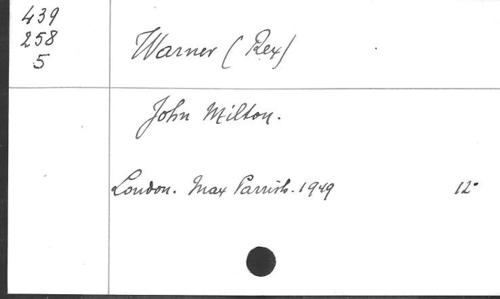 439
258
5
Warner (Rex)
John Milton.
London. Max Parrish. 1949
12°